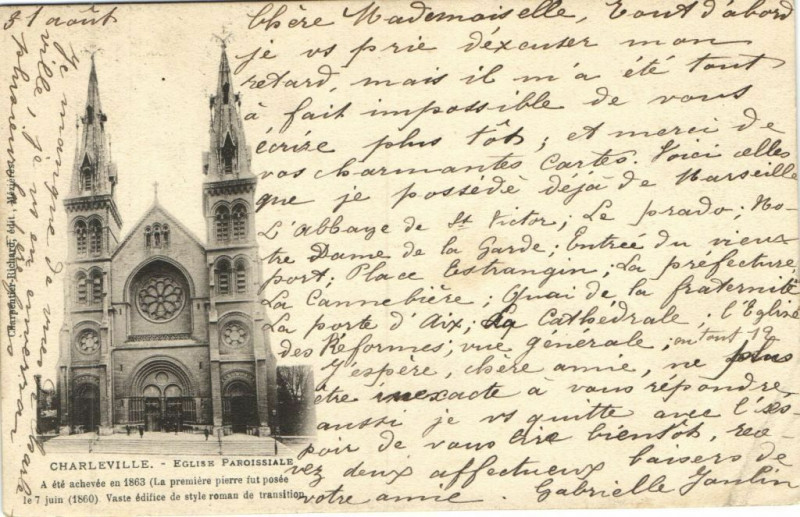 31 août
Chère Mademoiselle, Tout d'abord
je vs prie d'éxcuser mon
retard, mais il m'a été tout
à fait impossible de vous
écrire plus tôt; et merci de
vos charmantes cartes. Voici celles
que je possédè déjà de Marseille
L'abbaye de St Victor; Le prado; No-
tre Dame de la Garde; Entrée du vieux
port; Place Estrangin; La préfecture;
La Cannebière; Quai de la fraternité
La porte d'Aix; La Cathédrale; l'Eglise
des Réformes; vue générale; en tout 12
J'espère, chère amie, ne plus
être inexacte à vous répondre,
aussi je vs quitte avec l'es-
poir de vous lire bientôt, rece-
vez deux affectueux baisers de
votre amie. Gabrielle
Je manque de vues de Charle
ville; je vs en enverrai
Charpentier-Richard, édit. Mézières
CHARLEVILLE. - EGLISE PAROISSIALE
A été achevée en 1863 (La première pierre fut posée
le 7 juin (1860). Vaste édifice de style roman de transition